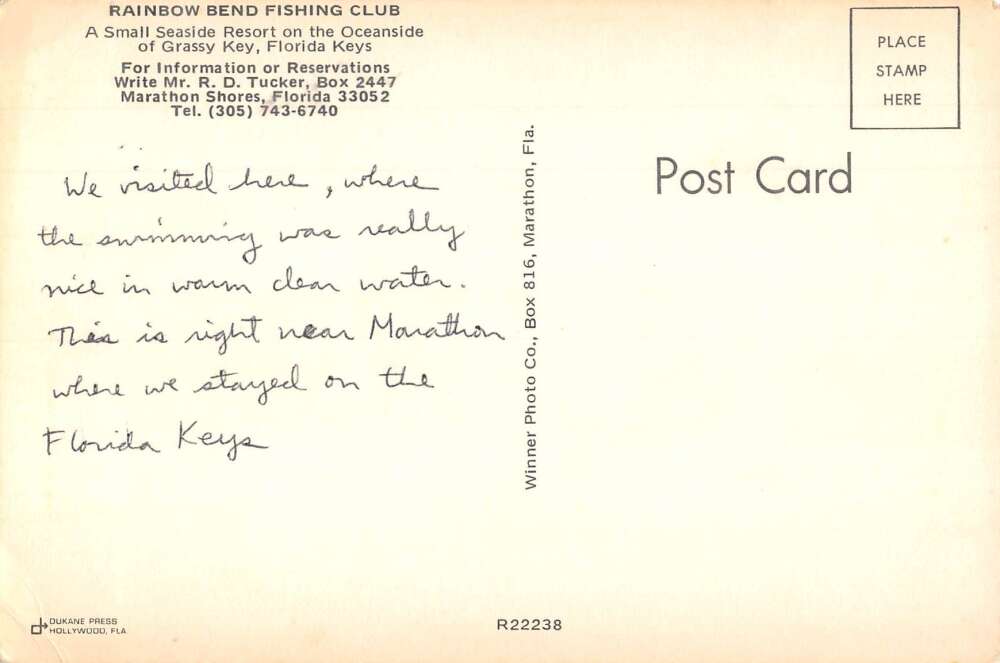 RAINBOW BEND FISHING CLUB
A Small Seaside Resort on the Oceanside
of Grassy Key, Florida Keys
For Information or Reservations
Write Mr. R. D. Tucker, Box 2447
Marathon Shores, Florida 33052
Tel. (305) 743-6740
We visited here, where
the swimming was really
nice in warm clear water.
This is right near Marathon
where we stayed on the
Florida Keys
DUKANE PRESS
HOLLYWOOD, FLA
Winner Photo Co., Box 816, Marathon, Fla.
R22238
PLACE
STAMP
HERE
Post Card